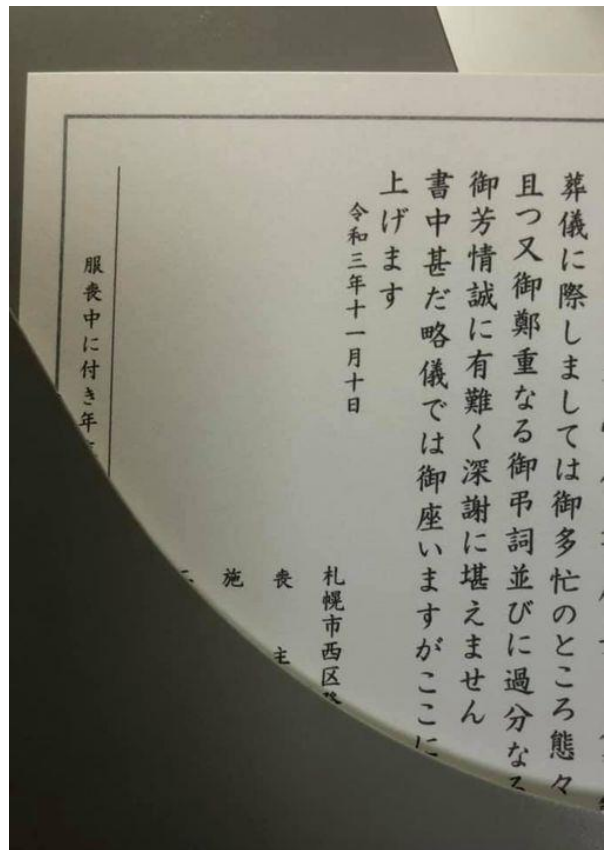 葬儀に際しましては御多忙のところ態々
且つ又御鄭重なる御弔詞並びに過分なる
御芳情誠に有難く深謝に堪えません
書中甚だ略儀では御座いますがここに
上げます
令和三年十一月十日
札幌市西区
喪主
施
服喪中に付き年